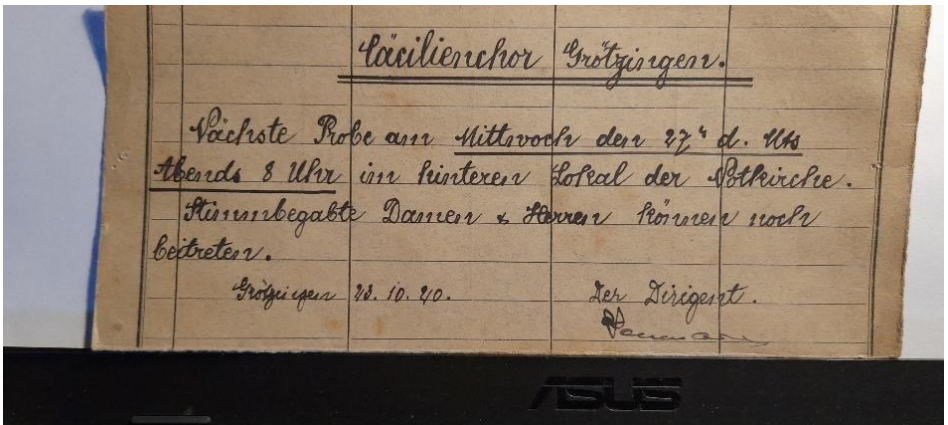 Cäcilienchor Grötzingen.
Nächste Probe am Mittwoch den 27" d. Mts
Abends 8 Uhr im hinteren Lokal der Notkirche.
Stimmbegabte Damen & Herren können noch
beitreten.
Grötzingen 23.10.20. Der Dirigent.
ASUS